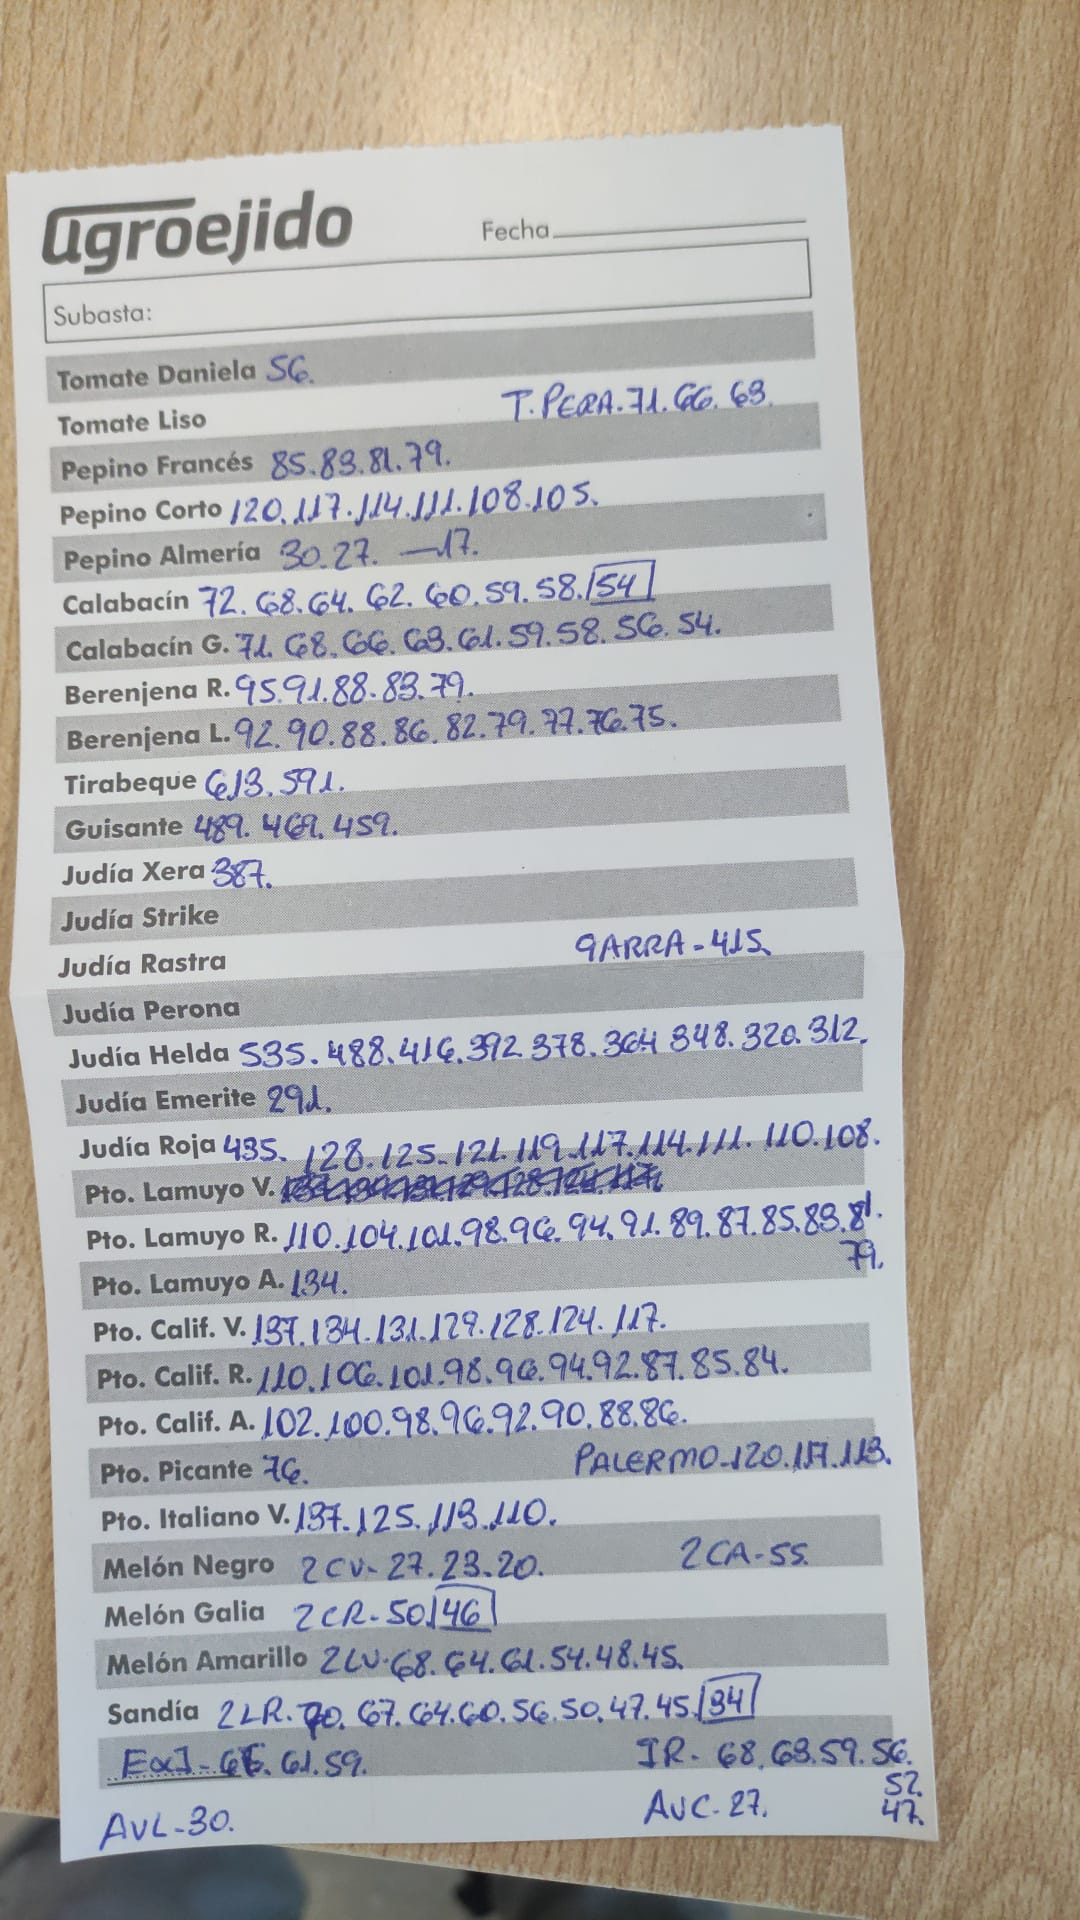 agroejido
Fecha
Subasta:
Tomate Daniela 56.
T. PERA. 71. 66. 63.
Tomate Liso
Pepino Francés 85. 83. 81. 79.
Pepino Corto 120. 117. 114. 111. 108. 105.
Pepino Almería 30. 27. — 17.
Calabacín 72. 68. 64. 62. 60. 59. 58. 54
Calabacín G. 71. 68. 66. 63. 61. 59. 58. 56. 54.
Berenjena R. 95. 91. 88. 83. 79.
Berenjena L. 92. 90. 88. 86. 82. 79. 77. 76. 75.
Tirabeque 613. 591.
Guisante 489. 469. 459.
Judía Xera 387.
Judía Strike
Judía Rastra GARRA - 415.
Judía Perona
Judía Helda 535. 488. 416. 392 378. 364 348. 320. 312.
Judía Emerite 291.
Judía Roja 435.
128. 125. 121. 119. 117. 114. 111. 110. 108.
Pto. Lamuyo V.
Pto. Lamuyo R. 110. 104. 101. 98. 96. 94. 91. 89. 87. 85. 83. 81.
79.
Pto. Lamuyo A. 134.
Pto. Calif. V. 137. 134. 131. 129. 128. 124. 117.
Pto. Calif. R. 110. 106. 101. 98. 96. 94. 92. 87. 85. 84.
Pto. Calif. A. 102. 100. 98. 96. 92. 90. 88. 86.
Pto. Picante 76. PALERMO - 120. 117. 113.
Pto. Italiano V. 137. 125. 113. 110.
Melón Negro 2CV - 27. 23. 20. 2CA - 55.
Melón Galia 2CR - 50. 46
Melón Amarillo 2LV - 68. 64. 61. 54. 48. 45.
Sandía 2LR. 70. 67. 64. 60. 56. 50. 47. 45. 34
61. 59. JR - 68. 63. 59. 56.
52.
47.
AVL - 30. AVC - 27.